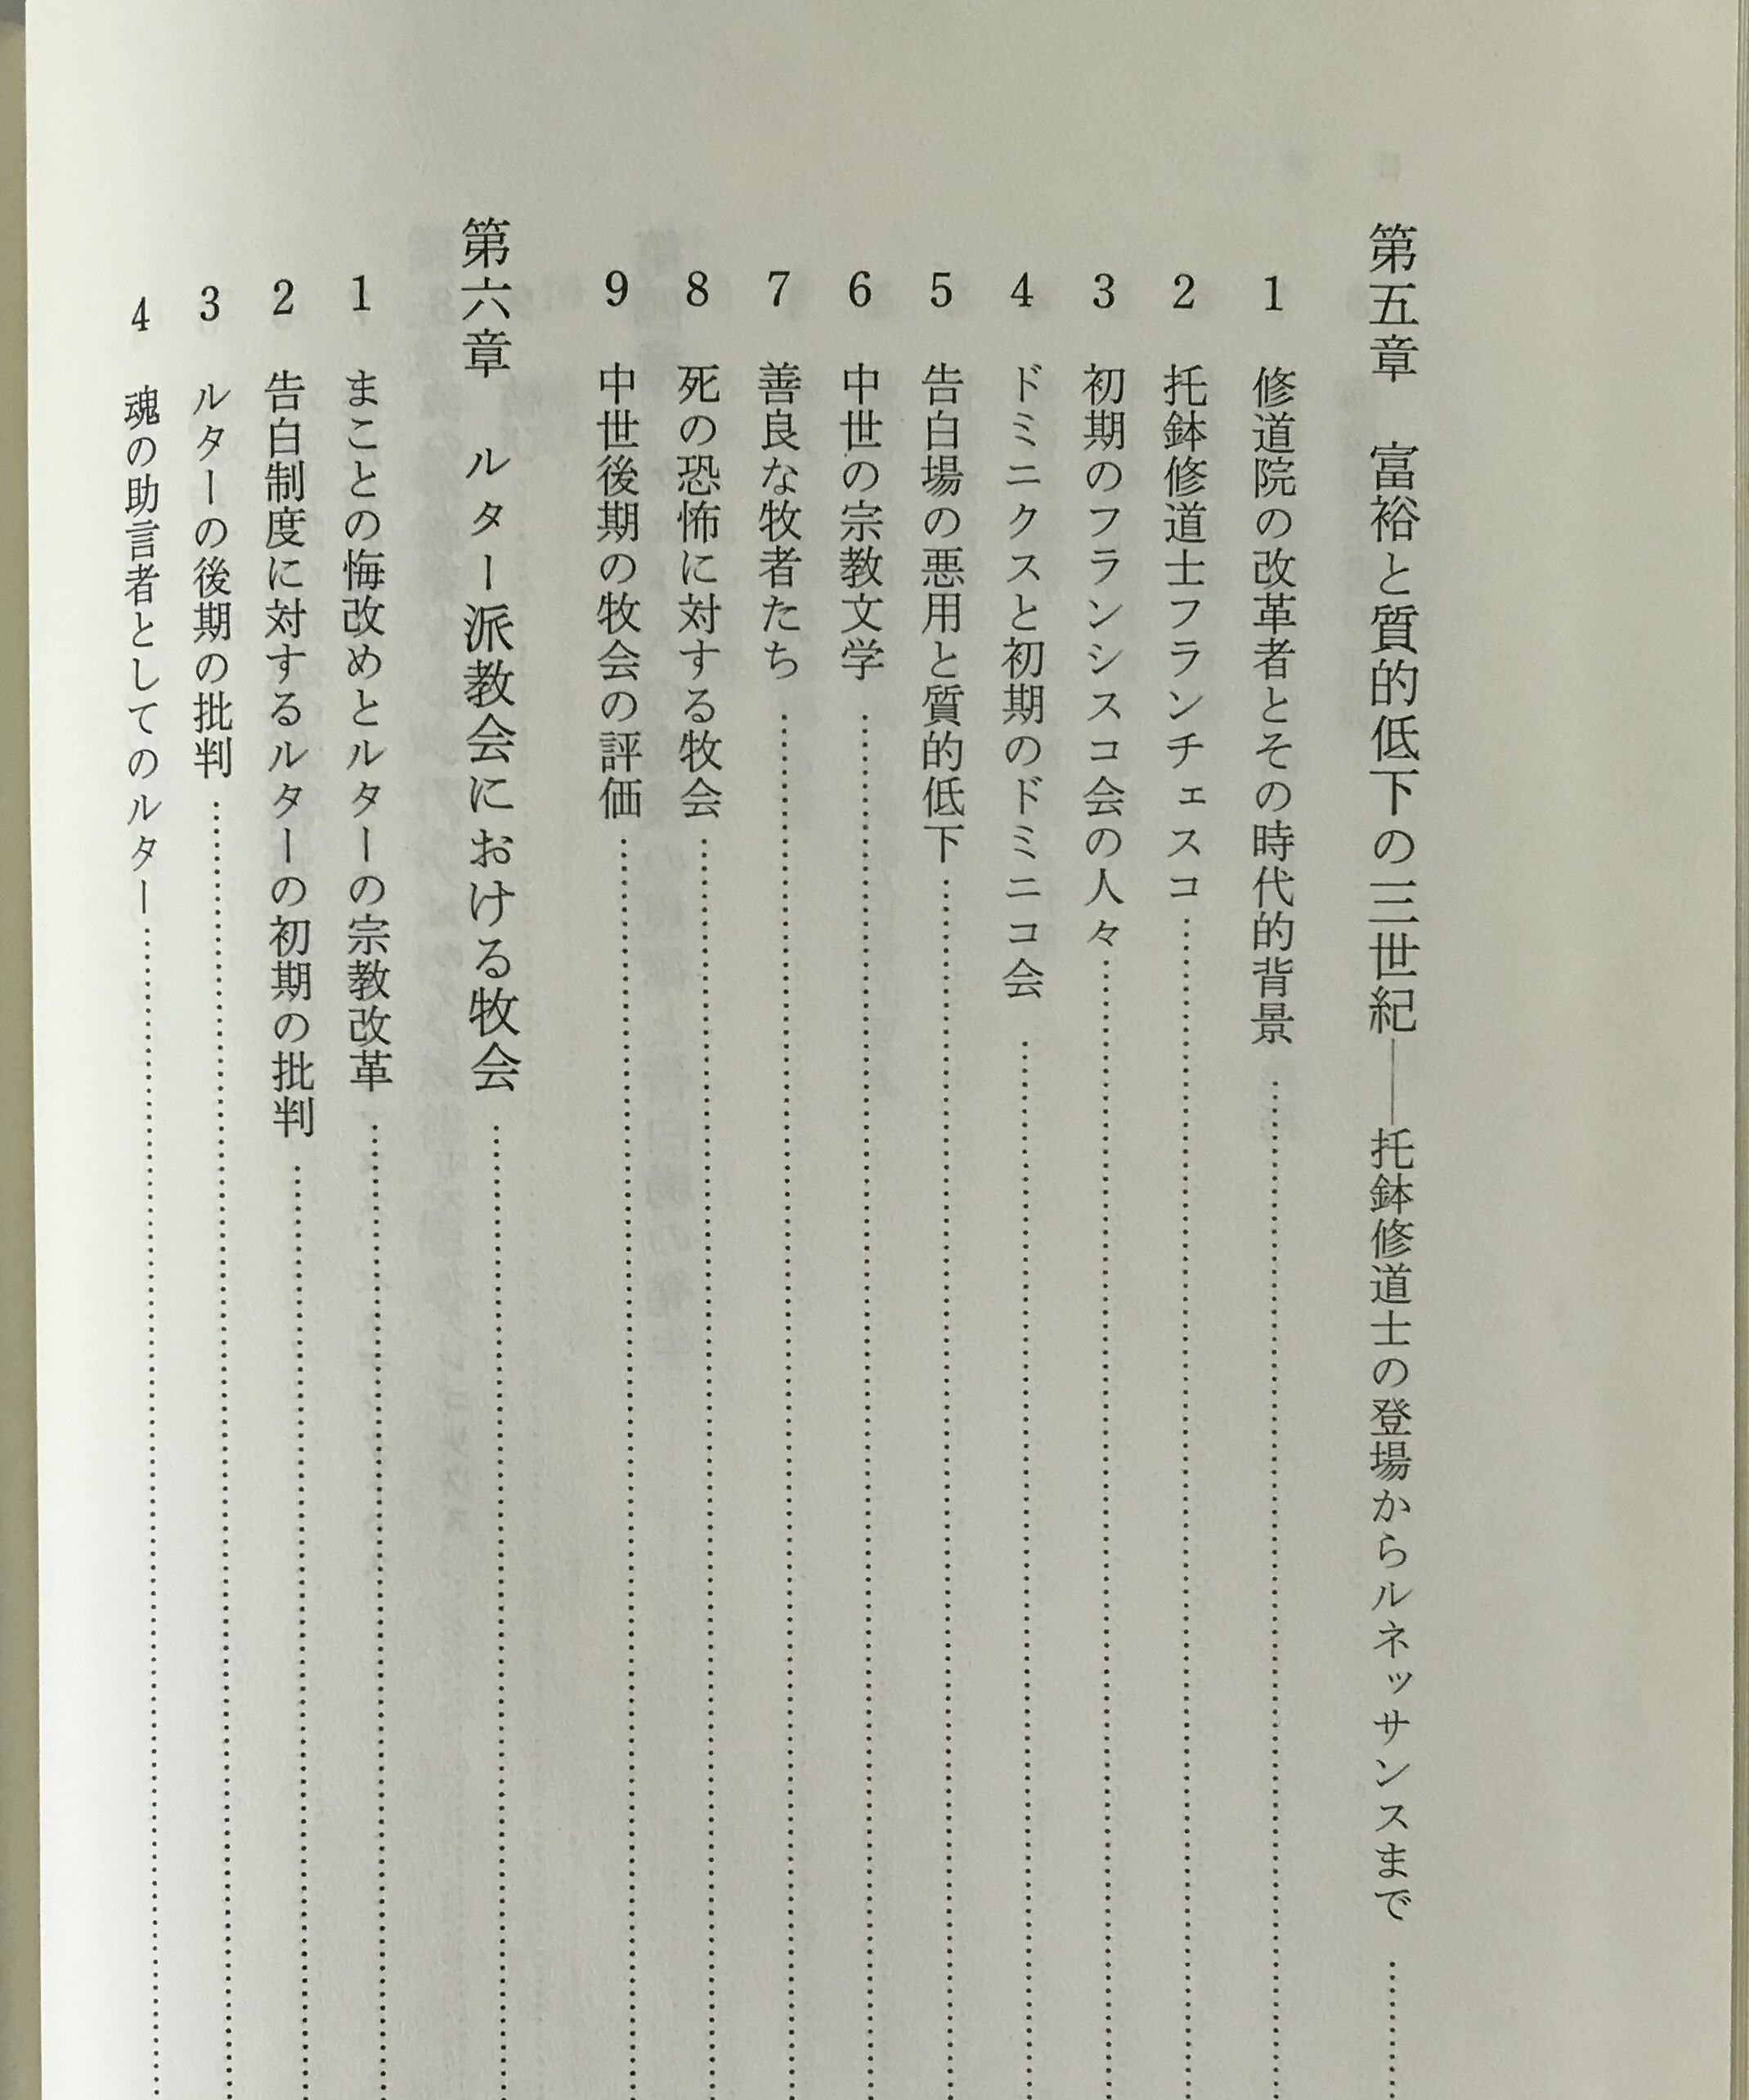 第五章　富裕と質的低下の三世紀――托鉢修道士の登場からルネッサンスまで ………
1　修道院の改革者とその時代的背景 ………
2　托鉢修道士フランチェスコ ………
3　初期のフランシスコ会の人々 ………
4　ドミニクスと初期のドミニコ会 ………
5　告白場の悪用と質的低下 ………
6　中世の宗教文学 ………
7　善良な牧者たち ………
8　死の恐怖に対する牧会 ………
9　中世後期の牧会の評価 ………
第六章　ルター派教会における牧会 ………
1　まことの悔改めとルターの宗教改革 ………
2　告白制度に対するルターの初期の批判 ………
3　ルターの後期の批判 ………
4　魂の助言者としてのルター ………